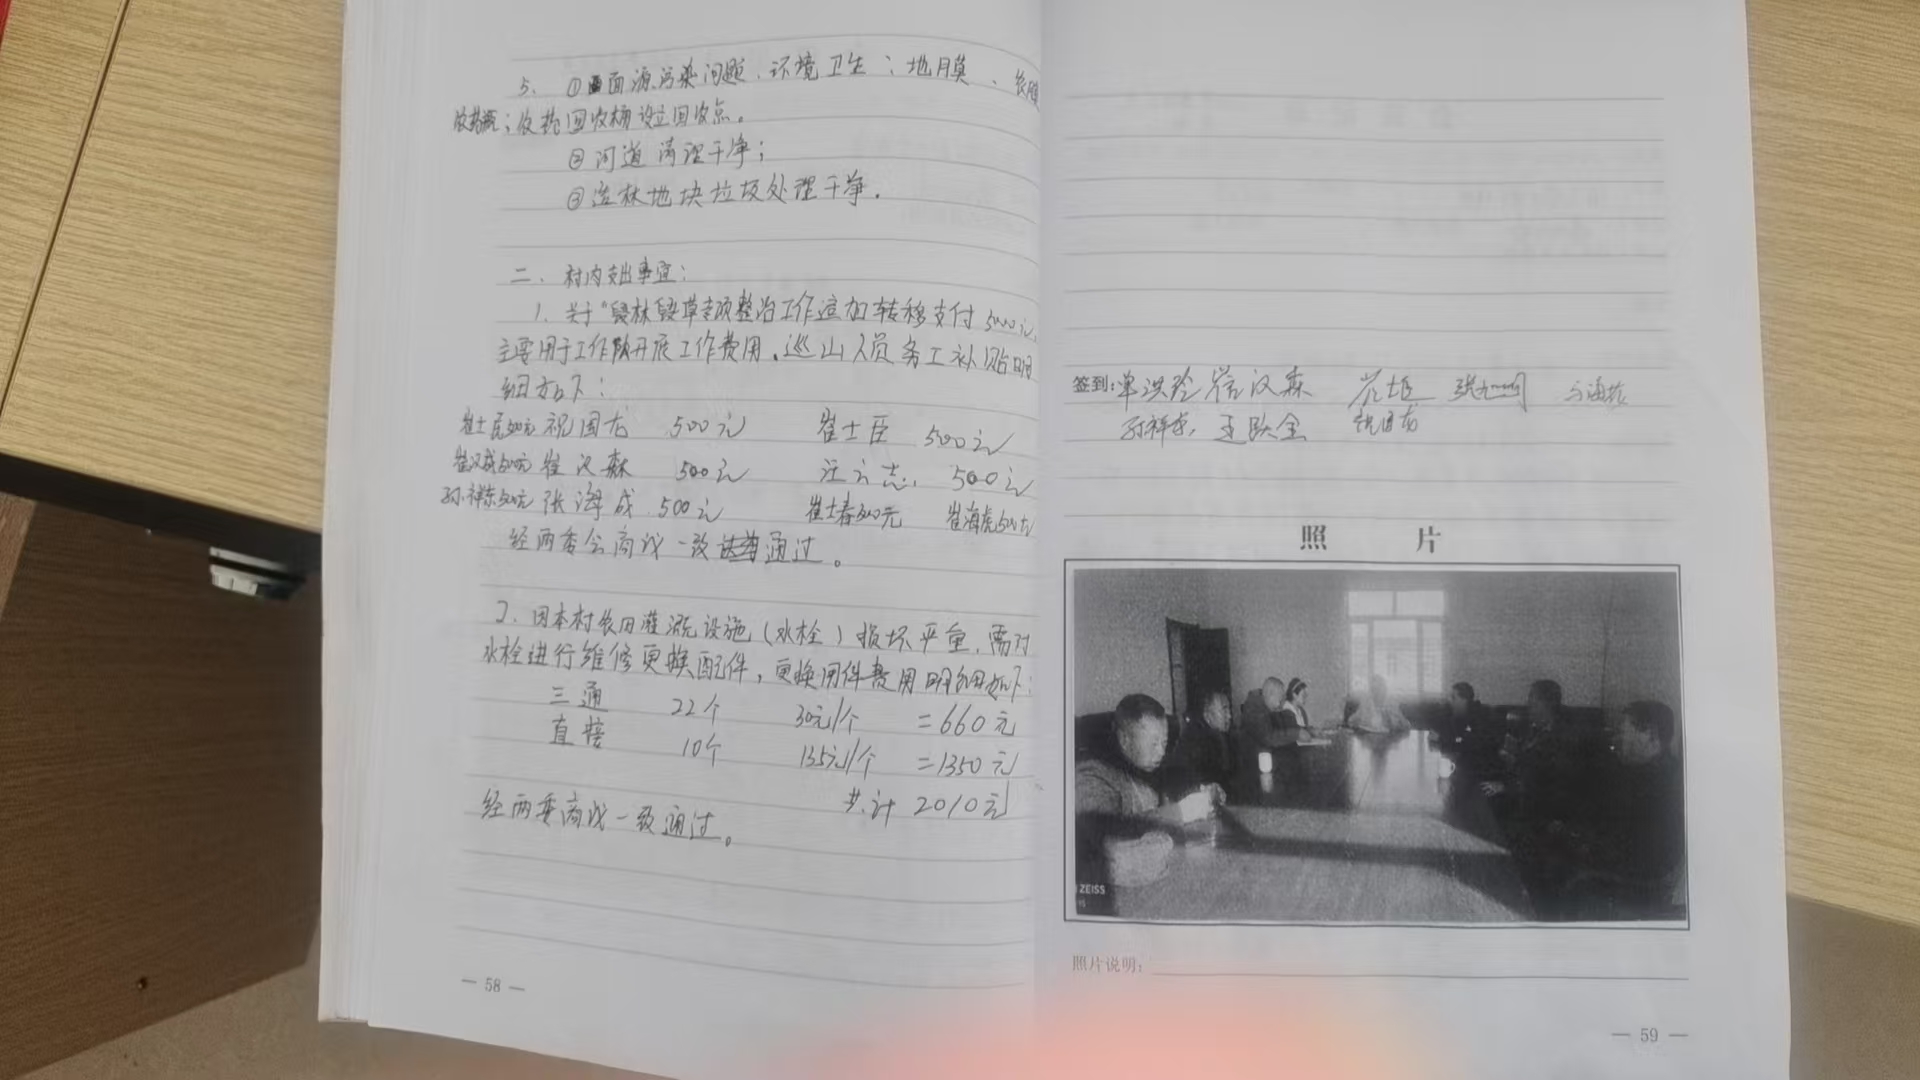 5. ①面源污染问题、环境卫生：地膜、农膜
农药瓶；农药回收桶设立回收点。
②河道清理干净；
③造林地块垃圾处理干净.
二、村内支出事宜：
1. 关于“毁林毁草专项整治工作追加转移支付5000元,
主要用于工作队开展工作费用、巡山人员务工补贴明
细如下：
崔士民500元 祝国友 500元 崔士臣 500元
崔汉成500元 崔汉森 500元 汪立志 500元
孙祥东500元 张海成 500元 崔士春500元 崔海虎500元
经两委会商议一致通过。
2. 因本村农田灌溉设施（水栓）损坏严重，需对
水栓进行维修更换配件，更换用件费用明细如下：
三通 22个 30元/个 =660元
直接 10个 135元/个 =1350元
共计 2010元
经两委商议一致通过。
— 58 —
签到: 单洪玲 崔汉森
孙祥东 王跃全 祝国友
照 片
ZEISS
照片说明:
— 59 —